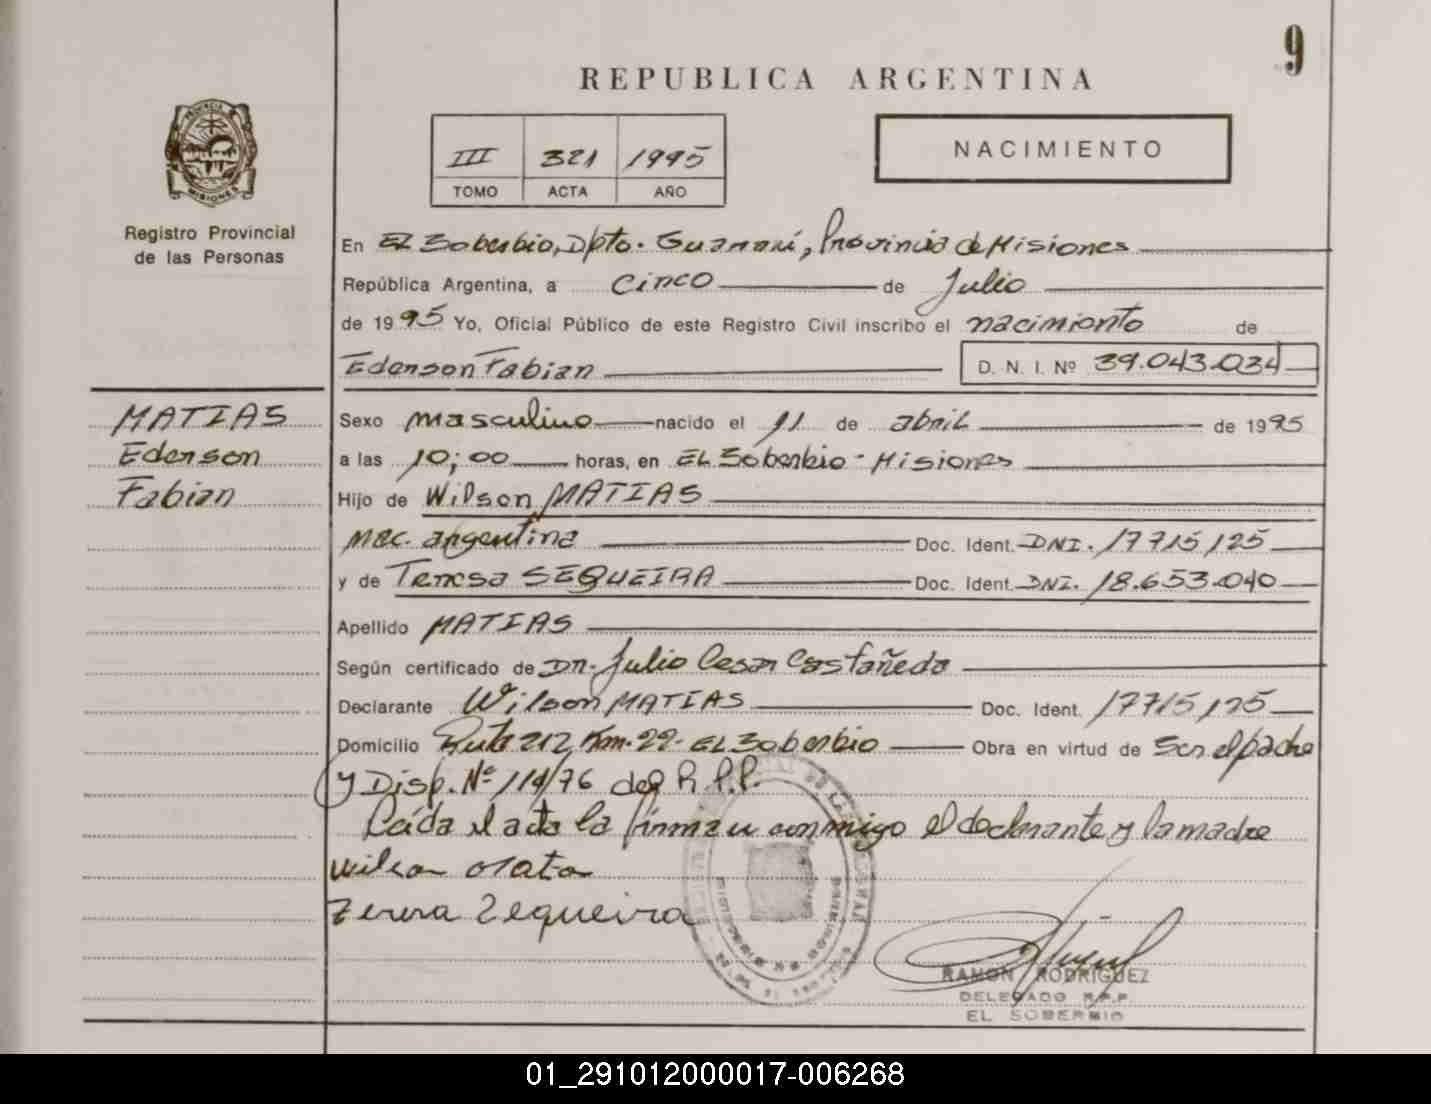 9
REPUBLICA ARGENTINA
PROVINCIA DE
MISIONES
Registro Provincial
de las Personas
III 321 1995
TOMO ACTA AÑO
NACIMIENTO
En EL Soberbio, Dpto. Guaraní, Provincia de Misiones
República Argentina, a cinco de Julio
de 1995 Yo, Oficial Público de este Registro Civil inscribo el nacimiento de
Ederson Fabian D. N. I. Nº 39.043.034
MATIAS
Ederson
Fabian
Sexo masculino nacido el 11 de abril de 1995
a las 10:00 horas, en EL Soberbio - Misiones
Hijo de Wilson MATIAS
nac. argentina Doc. Ident. DNI. 17715125
y de Teresa SEQUEIRA Doc. Ident. DNI. 18.653.040
Apellido MATIAS
Según certificado de Dr. Julio Cesar Castañeda
Declarante Wilson MATIAS Doc. Ident. 17715125
Domicilio Ruta 212 Km. 22 - EL Soberbio Obra en virtud de ser el padre
y Disp. Nº 114/76 del R.P.P.
Leída el acta la firman conmigo el declarante y la madre
Wilson
Teresa Sequeira
RAMON RODRIGUEZ
DELEGADO R.P.P
EL SOBERBIO
01_291012000017-006268